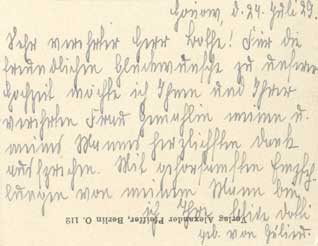 Gonow, d. 24. Juli 29.
Sehr verehrter Herr Bolhe! Für die
freundlichen Glückwünsche zu unserer
Hochzeit möchte ich Ihnen und Ihrer
verehrten Frau Gemahlin meinen u.
meines Mannes herzlichsten Dank
aussprechen. Mit gehorsamsten Empfeh-
lungen von meinem Mann bin
ich Ihre
geb. von
Verlag Alexander Pfeiffer, Berlin O. 112